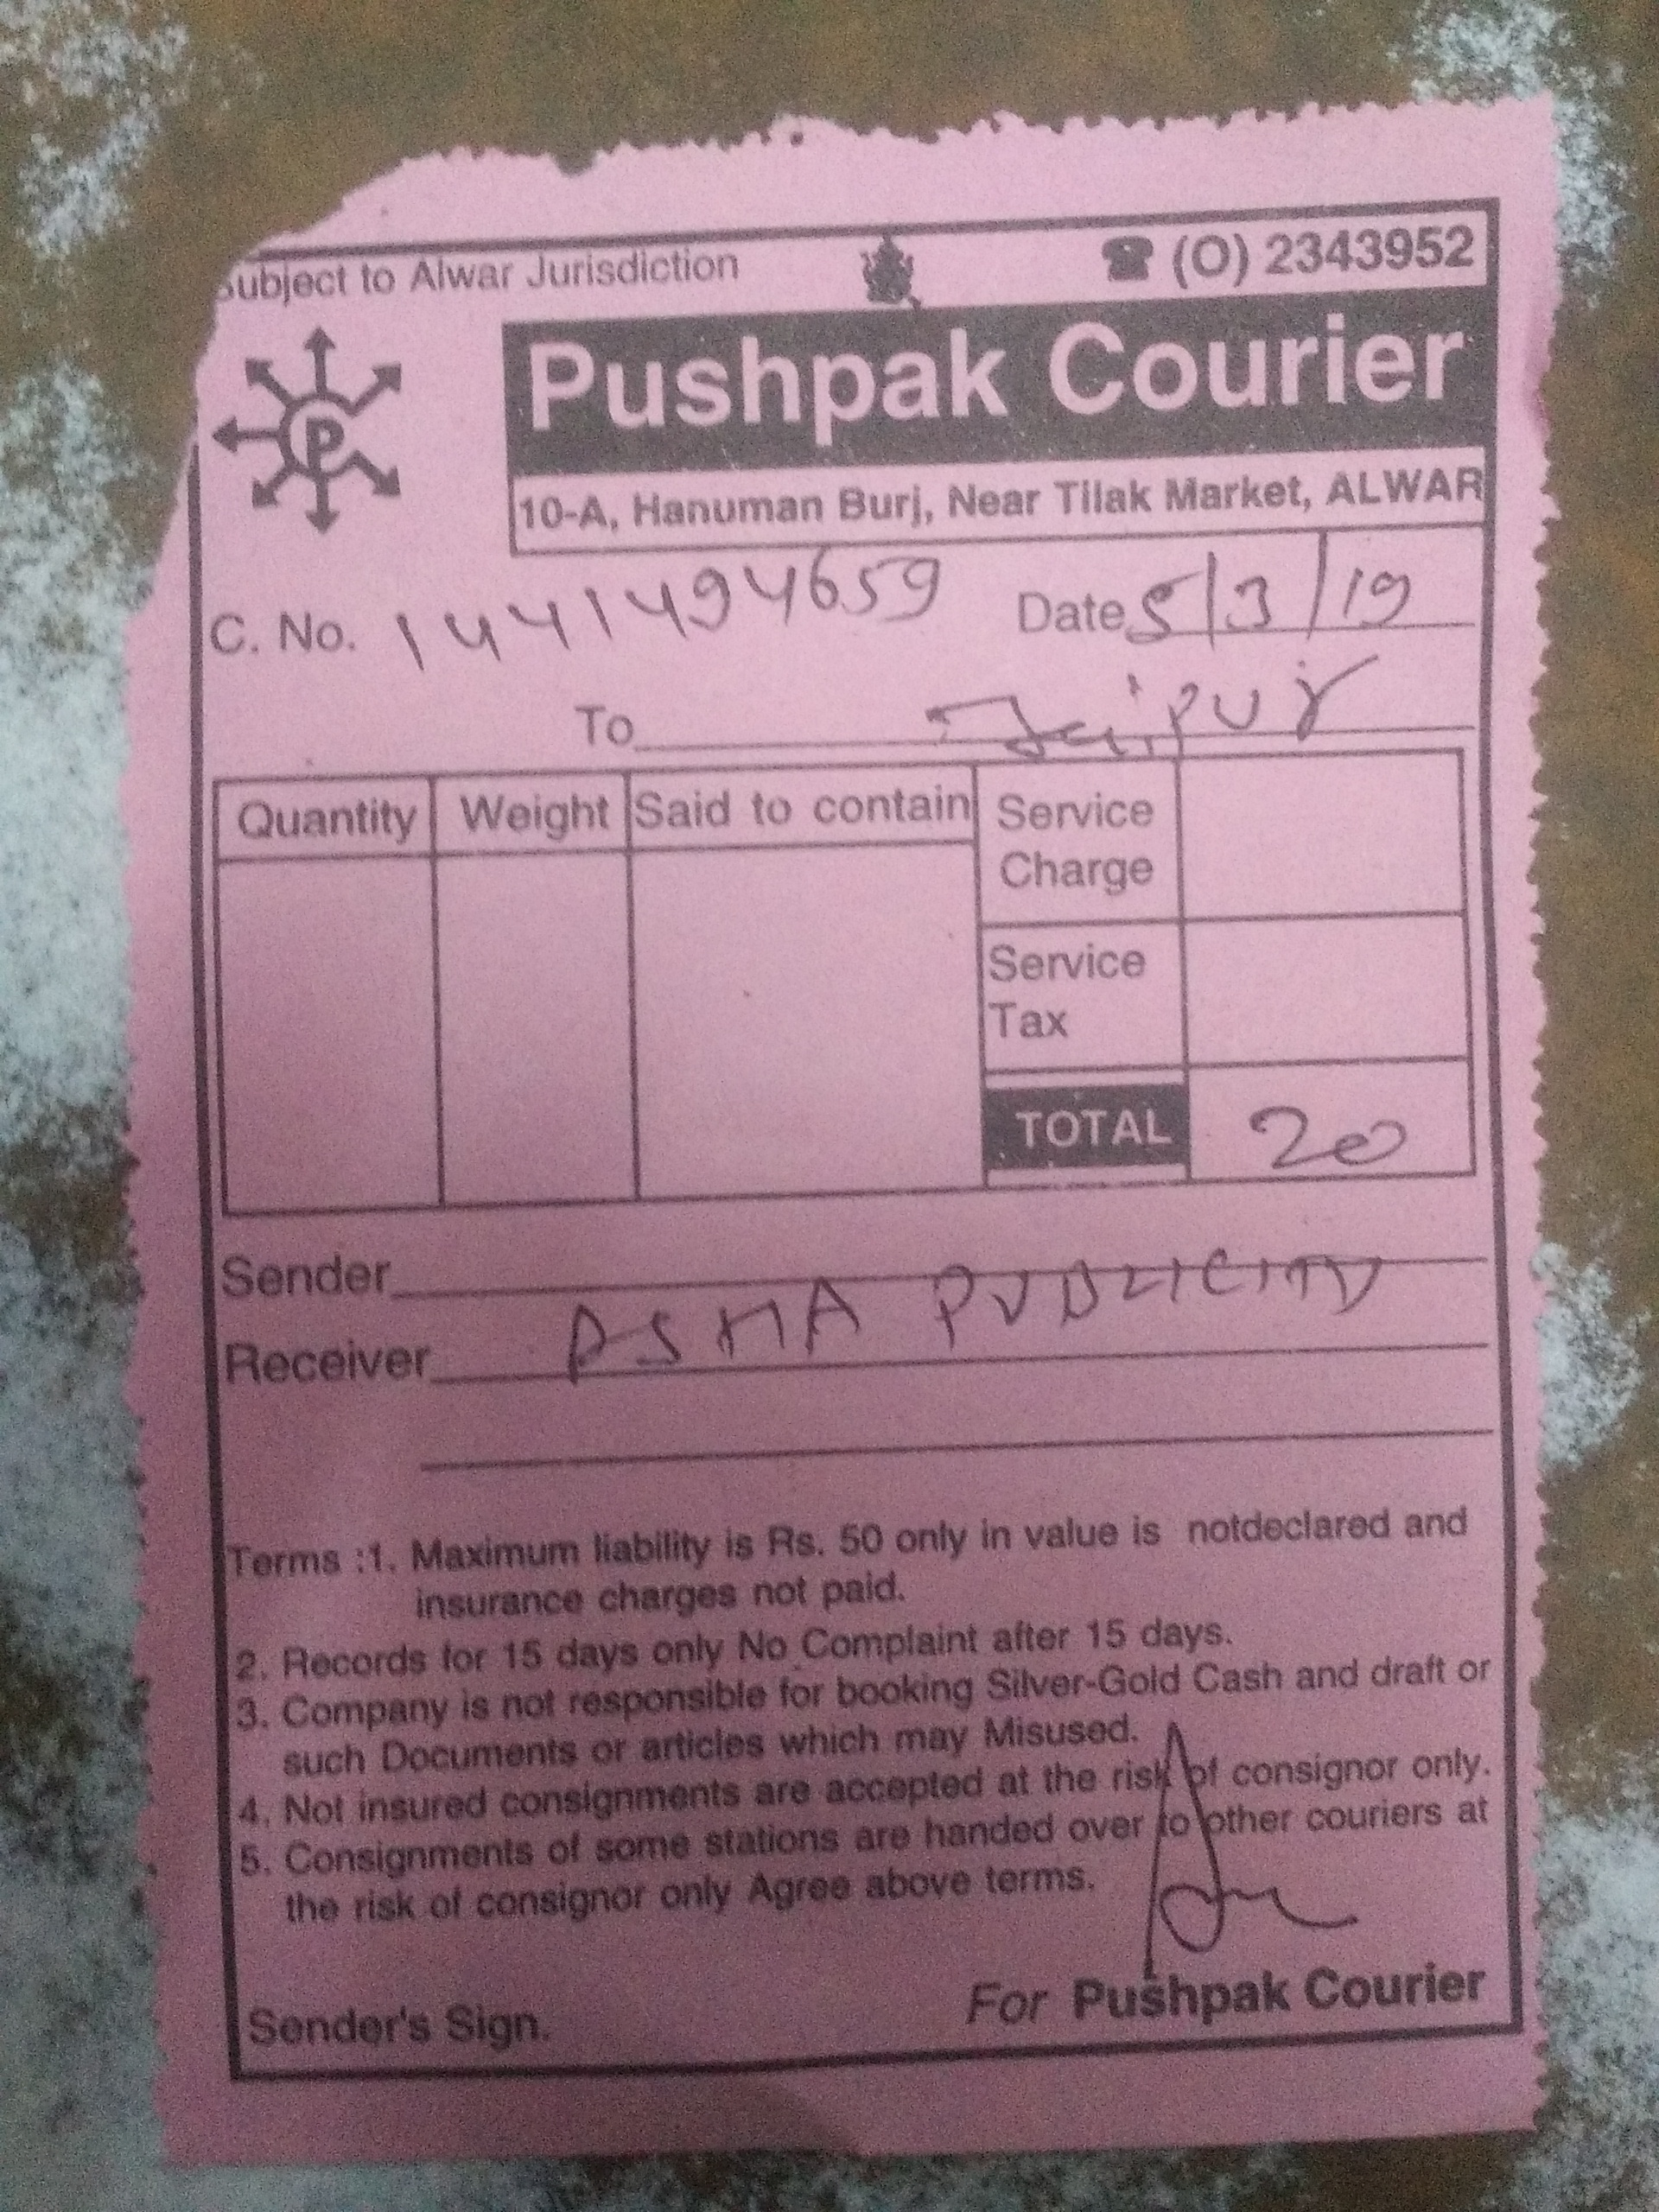 Subject to Alwar Jurisdiction (O) 2343952
P
Pushpak Courier
10-A, Hanuman Burj, Near Tilak Market, ALWAR
C. No. 1441494659 Date 5/3/19
To Jaipur
Quantity Weight Said to contain Service Charge
Service Tax
TOTAL 20
Sender
Receiver PUBLICITY
Terms :1. Maximum liability is Rs. 50 only in value is notdeclared and
insurance charges not paid.
2. Records for 15 days only No Complaint after 15 days.
3. Company is not responsible for booking Silver-Gold Cash and draft or
such Documents or articles which may Misused.
4. Not insured consignments are accepted at the risk of consignor only.
5. Consignments of some stations are handed over to other couriers at
the risk of consignor only Agree above terms.
Sender's Sign. For Pushpak Courier